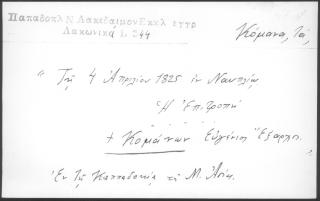 Παπαδοπλ Ν Λακεδαιμον Εκκλ εγγρ
Λακωνικά 1. 344
Κόμανα, Τά,
" Τῇ 4 Ἀπριλίου 1825 ἐν Ναυπλίῳ
Ἡ Ἐπιτροπή
+ Κομάνων Εὐγένιος Ἔξαρχος.
Ἐν τῇ Καππαδοκίᾳ τῆς Μ. Ἀσίας.